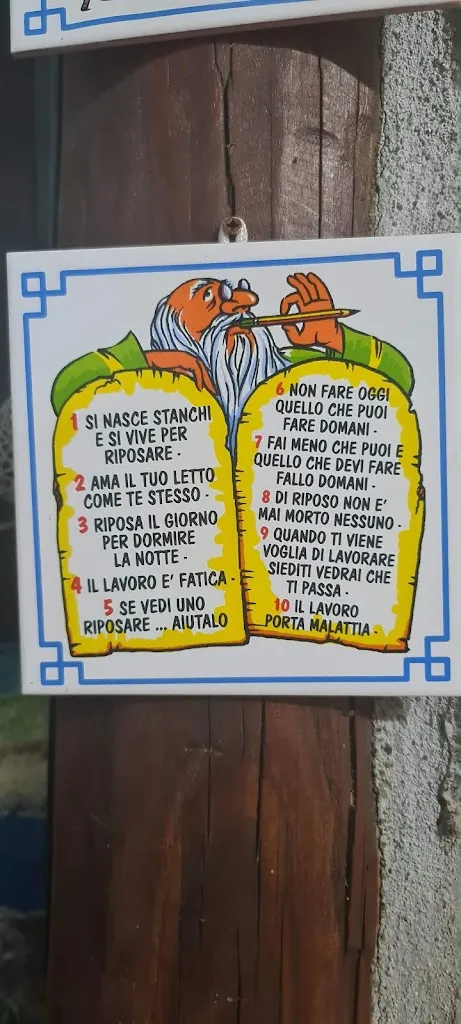 1 SI NASCE STANCHI
E SI VIVE PER
RIPOSARE -
2 AMA IL TUO LETTO
COME TE STESSO -
3 RIPOSA IL GIORNO
PER DORMIRE
LA NOTTE -
4 IL LAVORO E' FATICA -
5 SE VEDI UNO
RIPOSARE ... AIUTALO
6 NON FARE OGGI
QUELLO CHE PUOI
FARE DOMANI -
7 FAI MENO CHE PUOI E
QUELLO CHE DEVI FARE
FALLO DOMANI -
8 DI RIPOSO NON E'
MAI MORTO NESSUNO -
9 QUANDO TI VIENE
VOGLIA DI LAVORARE
SIEDITI VEDRAI CHE
TI PASSA -
10 IL LAVORO
PORTA MALATTIA -